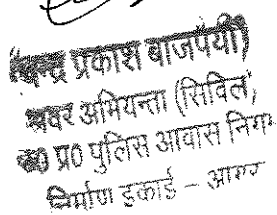 (चन्द्र प्रकाश बाजपेयी)
अवर अभियन्ता (सिविल)
उ० प्र० पुलिस आवास निगम
निर्माण इकाई – आगरा